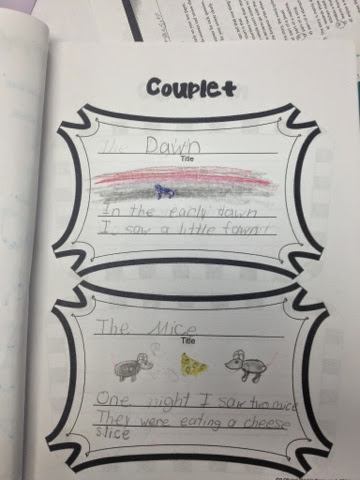 Couplet
The Dawn
Title
In the early dawn
I saw a little fawn!
The Mice
Title
One night I saw two mice
They were eating a cheese
slice